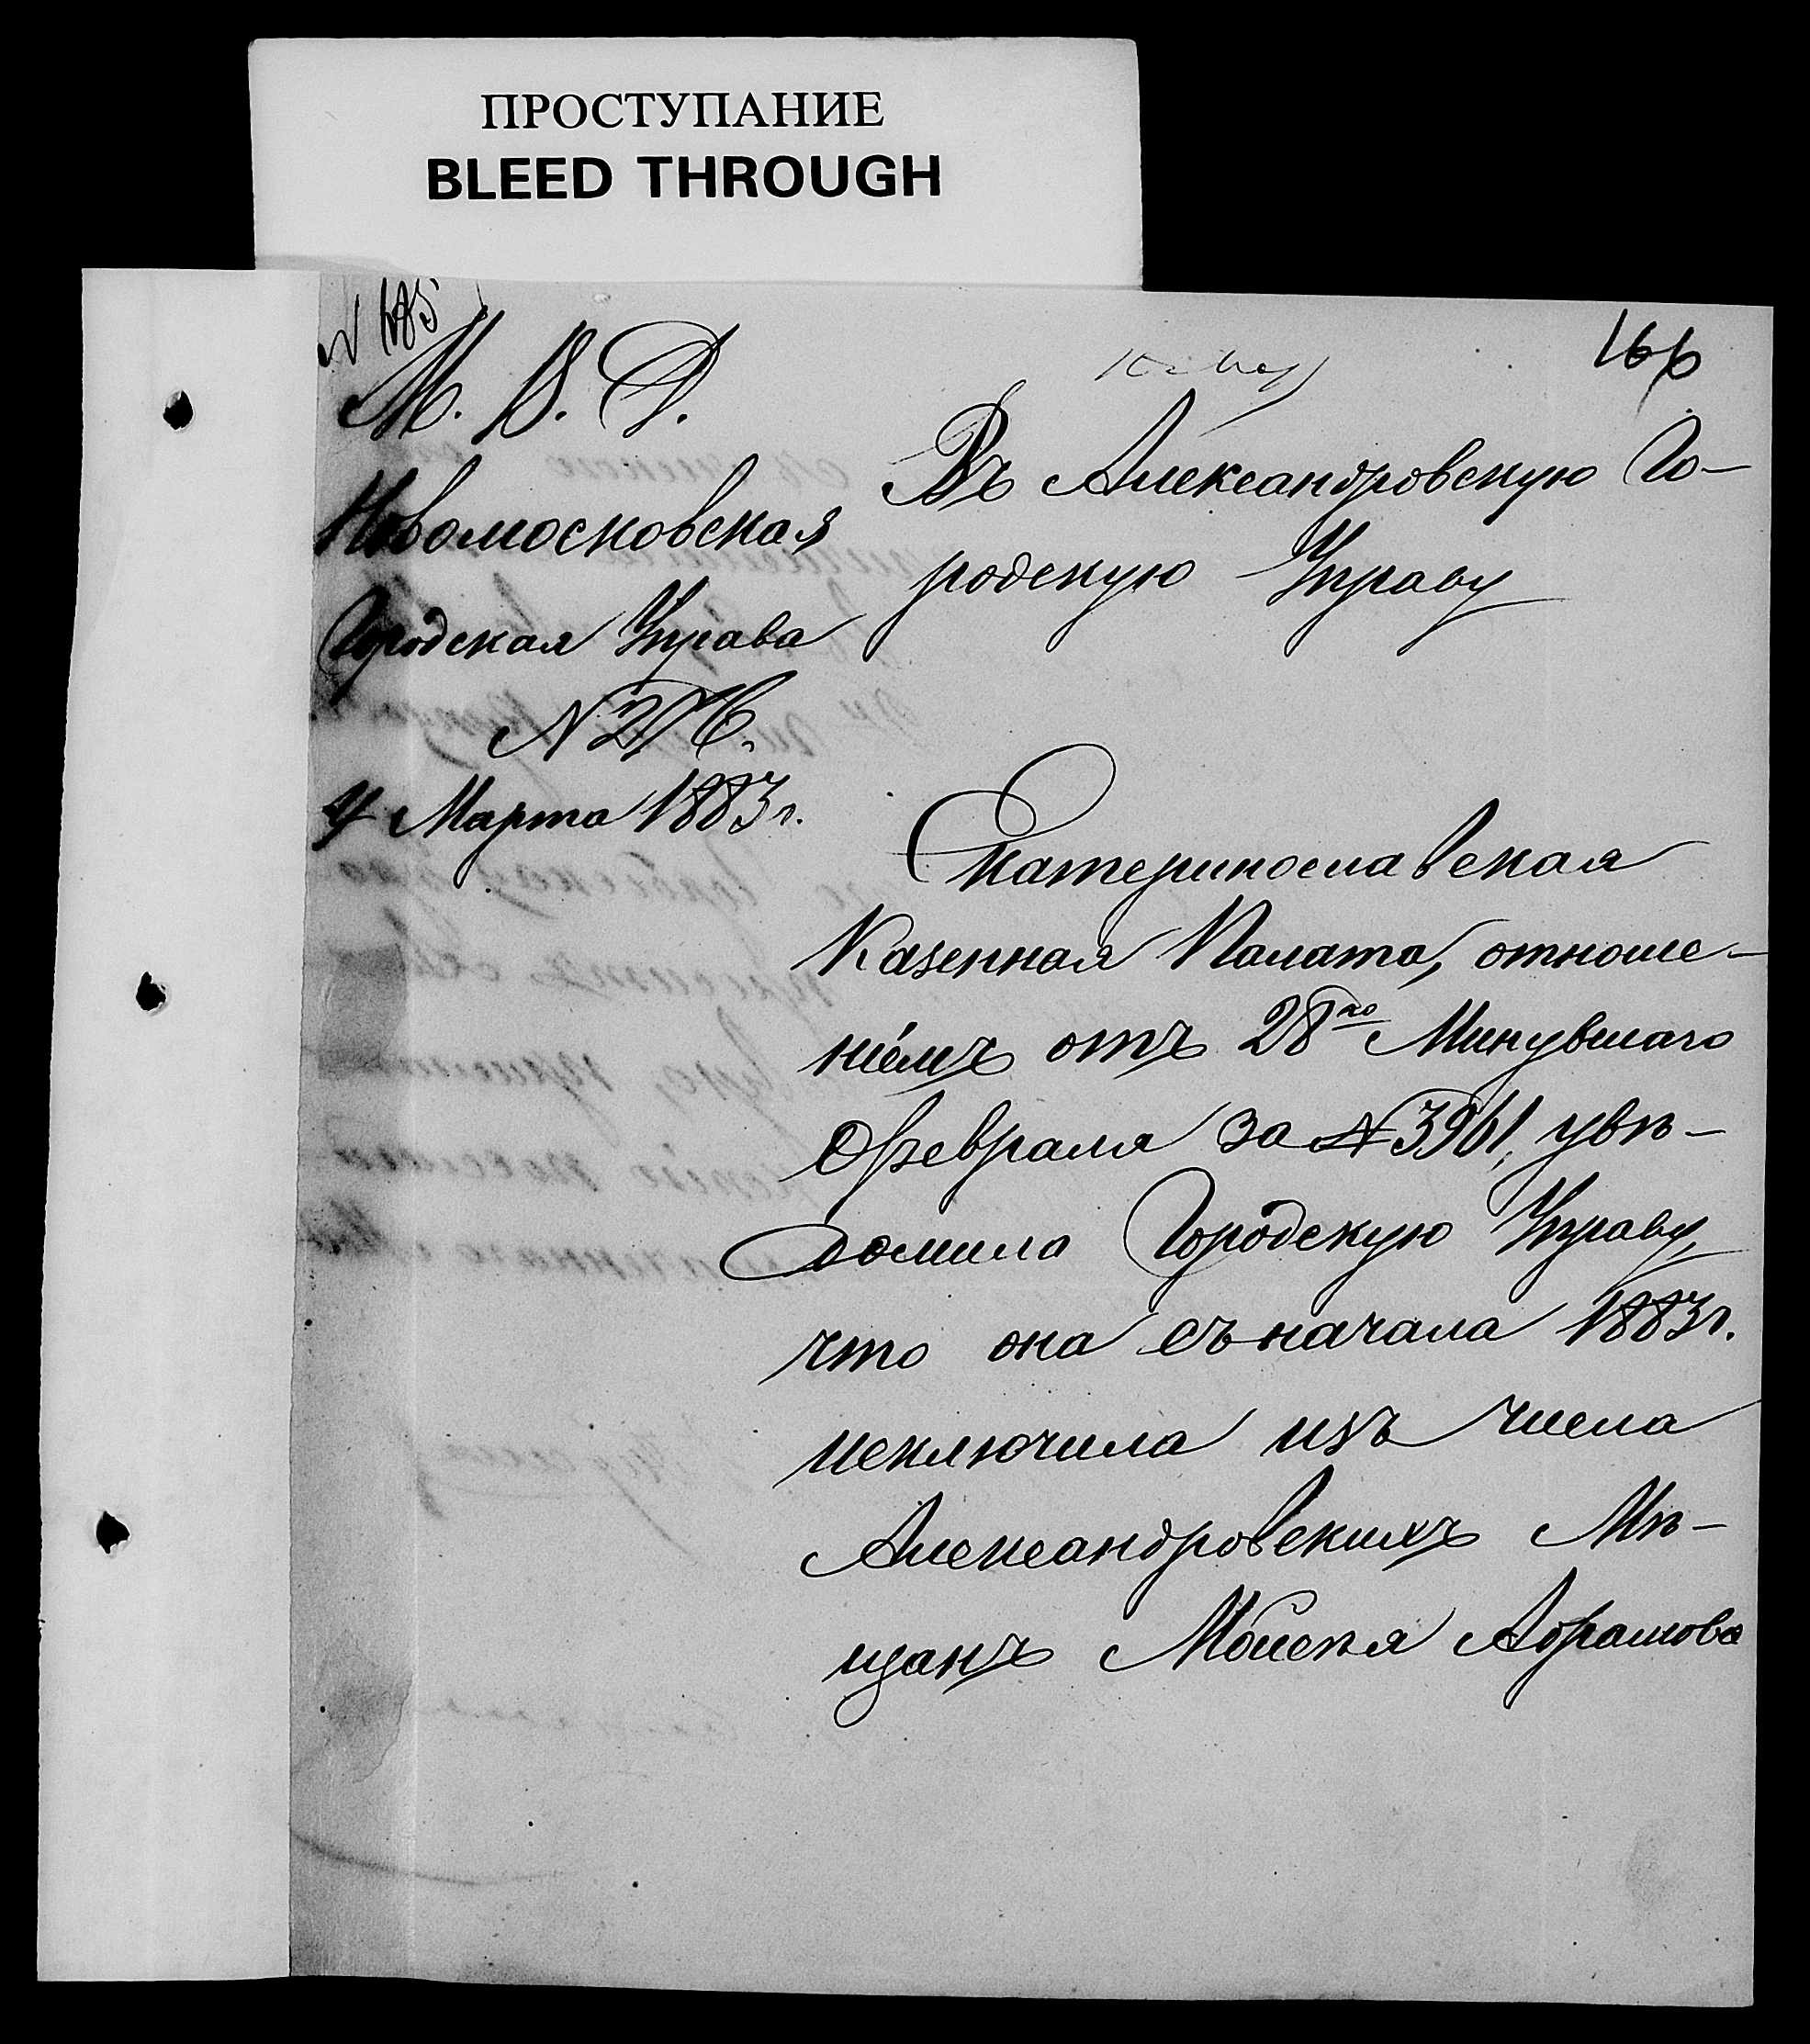 ПРОСТУПАНИЕ
BLEED THROUGH
N 185
166
М. В. Д.
Новомосковская
Городская Управа
N 276.
4 Марта 1883 г.
Въ Александровскую Го-
родскую Управу
Екатеринославская
Казенная Палата, отноше-
ніемъ отъ 28го Минувшаго
Февраля за N 3961, увѣ-
домила Городскую Управу,
что она съ начала 1883 г.
исключила изъ числа
Александровскихъ Мѣ-
щанъ Мойсѣя Абрамова